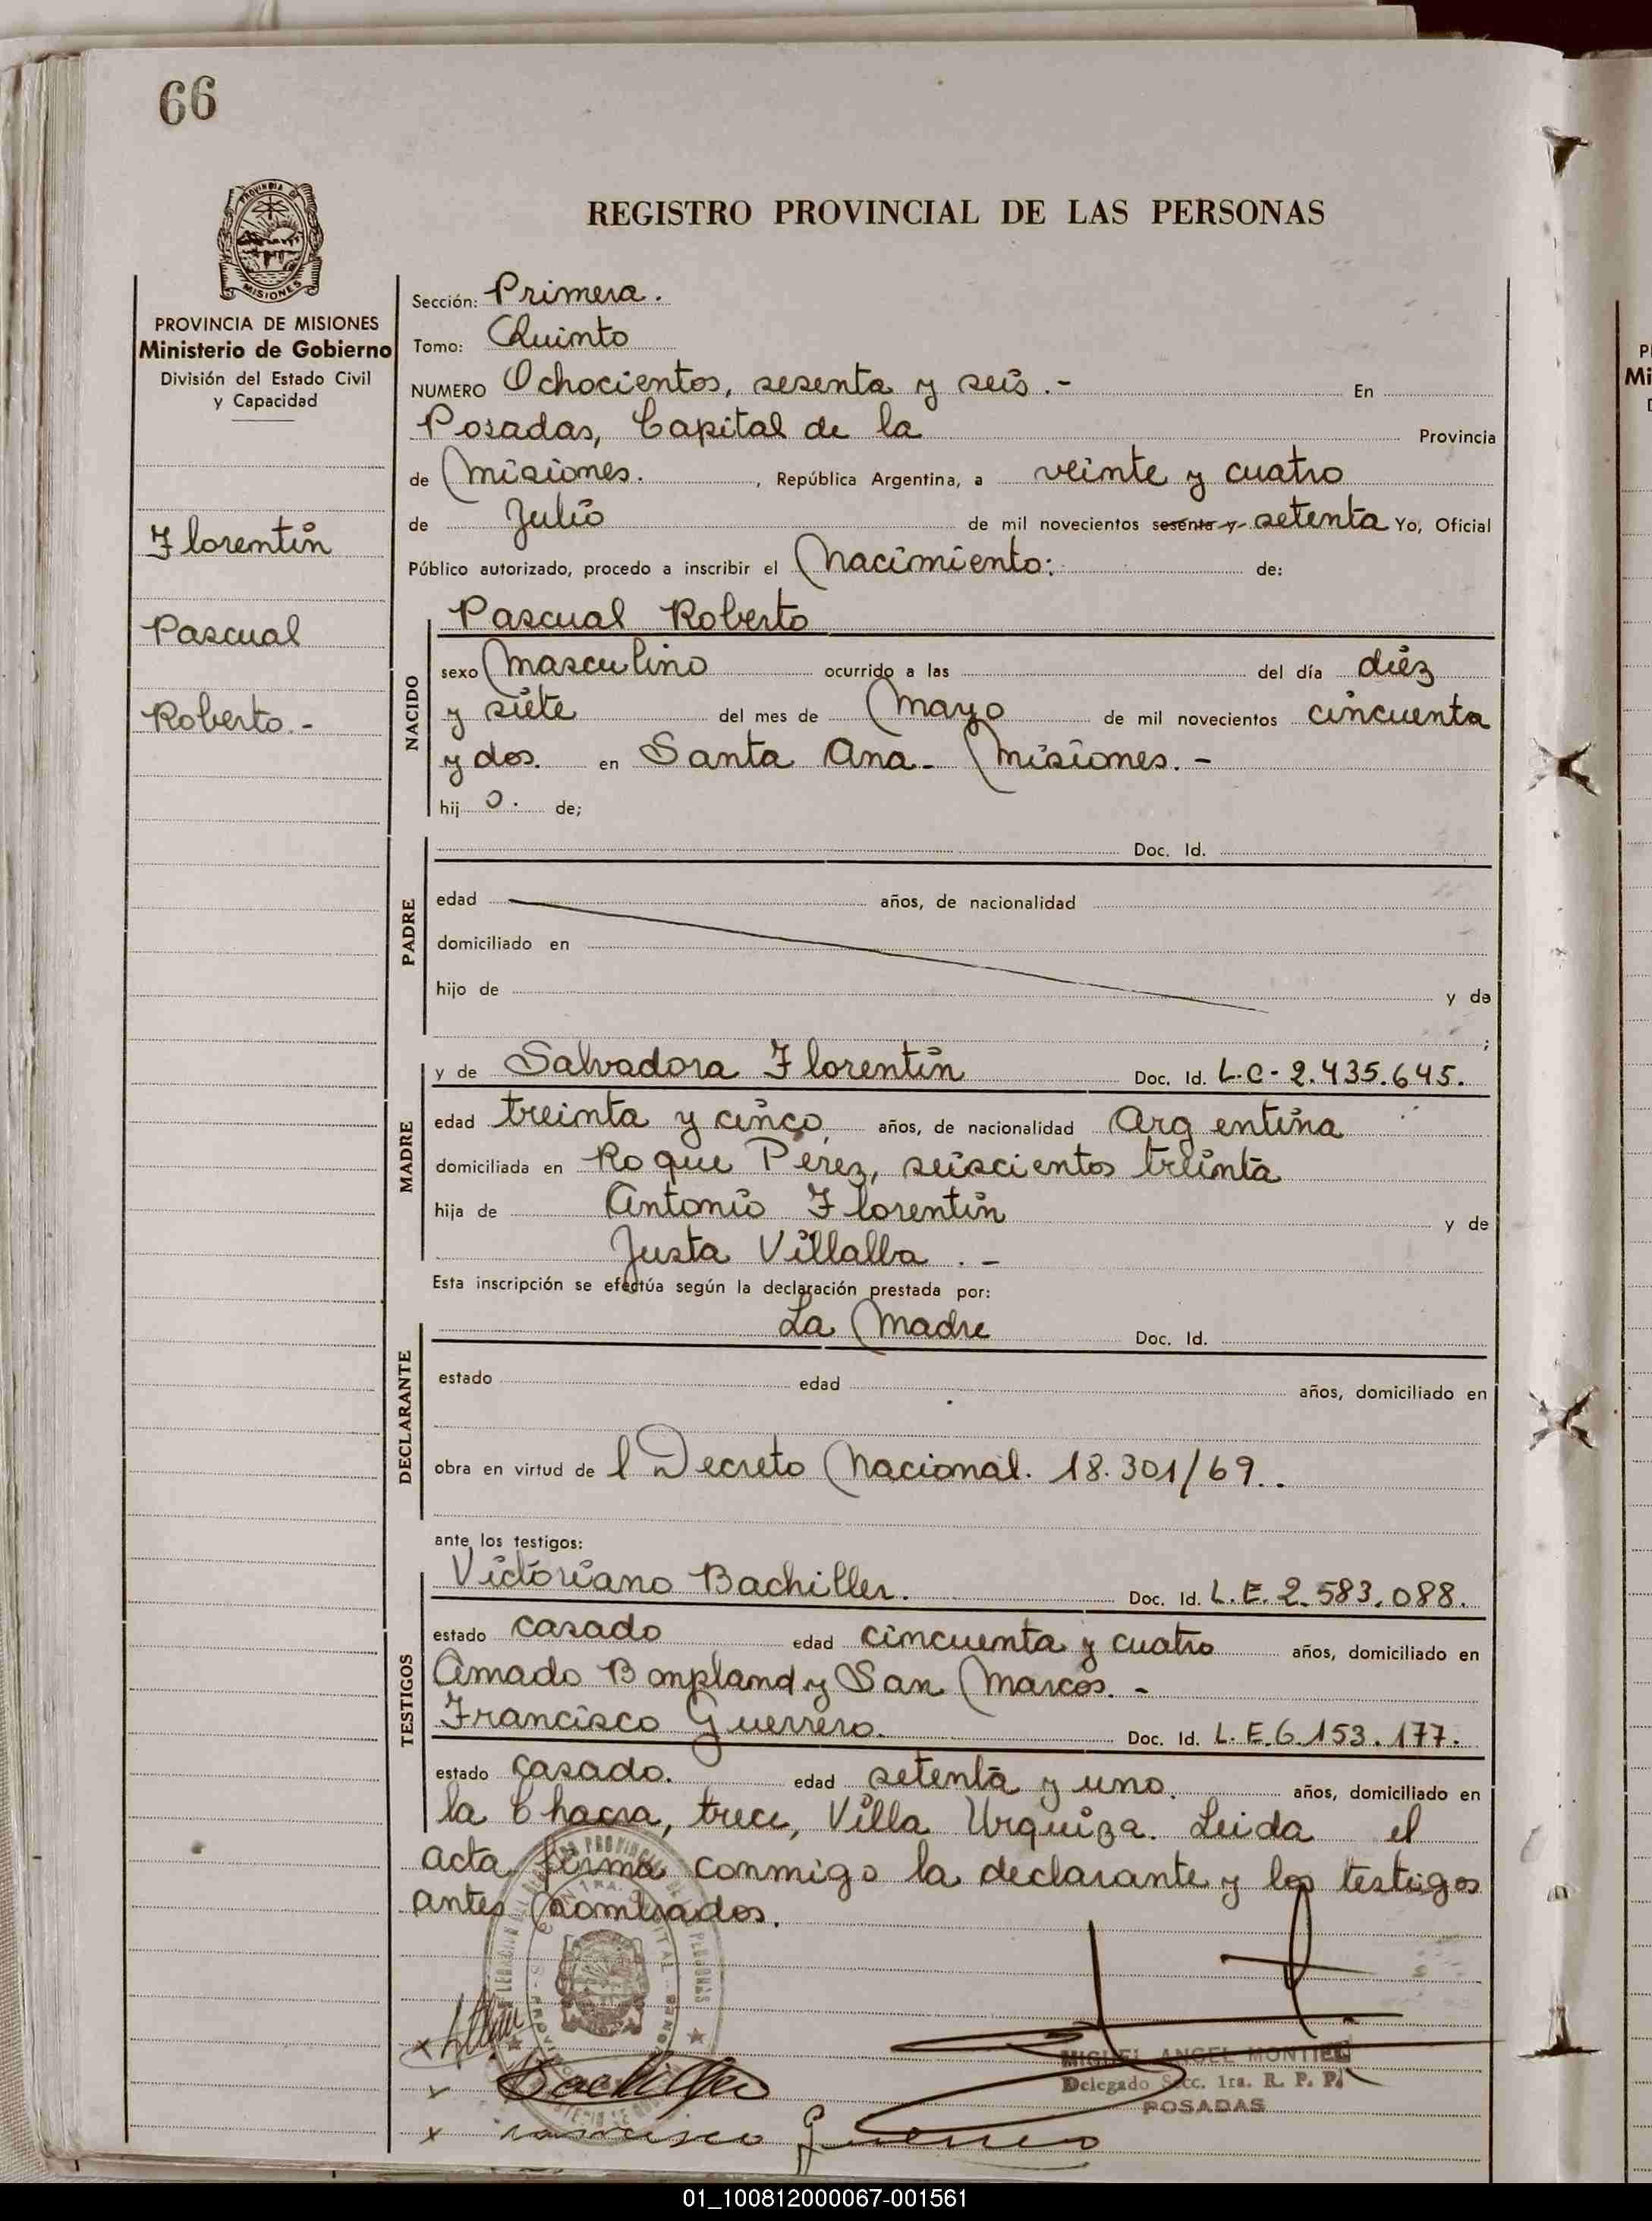 66
PROVINCIA DE
MISIONES
REGISTRO PROVINCIAL DE LAS PERSONAS
PROVINCIA DE MISIONES
Ministerio de Gobierno
División del Estado Civil
y Capacidad
Florentin
Pascual
Roberto.-
Sección: Primera.
Tomo: Quinto
NUMERO Ochocientos, sesenta y seis.- En
Posadas, Capital de la Provincia
de Misiones. , República Argentina, a veinte y cuatro
de Julio de mil novecientos sesenta y setenta Yo, Oficial
Público autorizado, procedo a inscribir el Nacimiento: de:
NACIDO
Pascual Roberto
sexo Masculino ocurrido a las del día diéz
y siete del mes de Mayo de mil novecientos cincuenta
y dos. en Santa Ana- Misiones.-
hij o. de;
PADRE
Doc. Id.
edad años, de nacionalidad
domiciliado en
hijo de y de
;
MADRE
y de Salvadora Florentin Doc. Id. L.C- 2.435.645.
edad treinta y cinco, años, de nacionalidad Argentina
domiciliada en Roque Perez, seiscientos treinta
hija de Antonio Florentin y de
Justa Villalba .-
Esta inscripción se efectúa según la declaración prestada por:
DECLARANTE
La Madre Doc. Id.
estado edad años, domiciliado en
obra en virtud de l Decreto Nacional. 18.301/69..
ante los testigos:
TESTIGOS
Victoriano Bachiller. Doc. Id. L.E. 2.583.088.
estado casado edad cincuenta y cuatro años, domiciliado en
Amado Bonpland y San Marcos.-
Francisco Guerrero. Doc. Id. L.E.6.153.177.
estado casado. edad setenta y uno. años, domiciliado en
la Chacra, trece, Villa Urquiza. Leida el
acta firma conmigo la declarante y los testigos
antes nombrados.
MIGUEL ANGEL MONTIEL
Delegado Secc. 1ra. R. P. P.
POSADAS
x
x Bachiller
x Francisco Guerrero
01_100812000067-001561